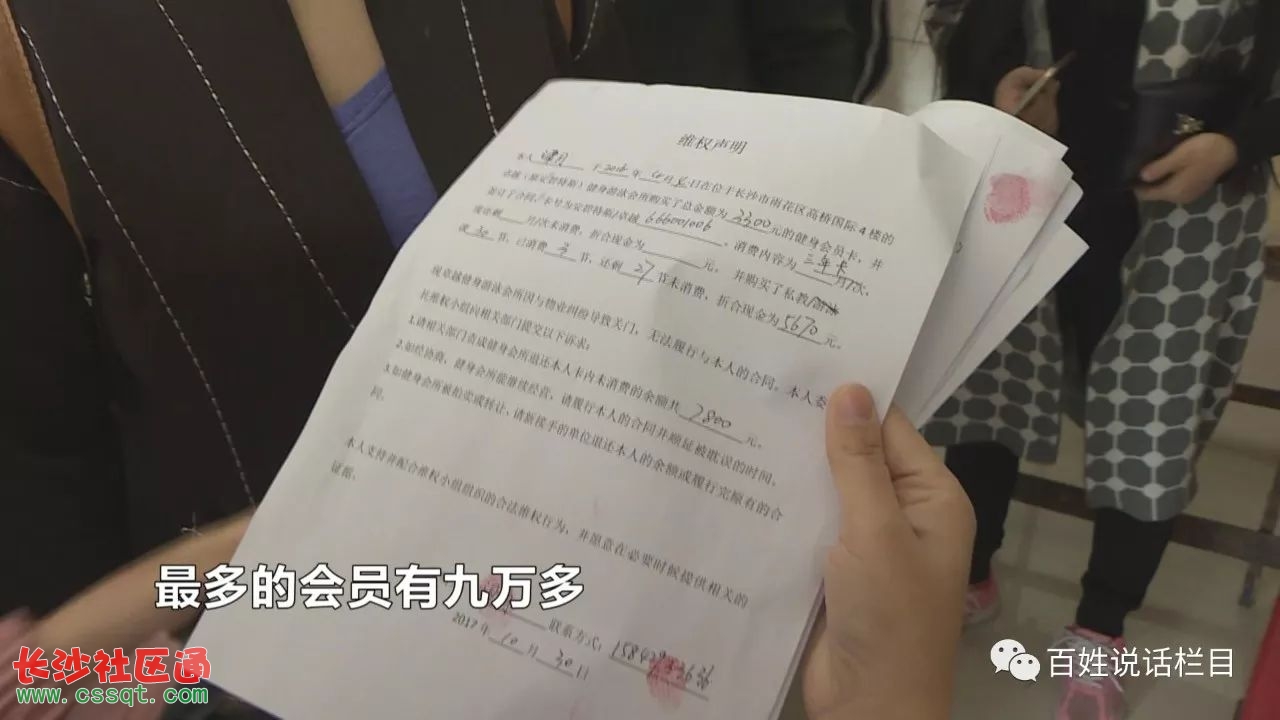 维权声明
本人 于2016年 月 日在位于长沙市雨花区高桥国际4楼的
卓越(原安普特斯)健身游泳会所购买了总金额为3300元的健身会员卡,并
签订了合同,卡号为安普特斯/卓越666001006,消费内容为三年卡,
现还剩 月/次未消费,折合现金为 元。并购买了私教/游泳
课30节,已消费3节,还剩27节未消费,折合现金为5670元。
现卓越健身游泳会所因与物业纠纷导致关门,无法履行与本人的合同。本人委
托维权小组向相关部门提交以下诉求:
1.请相关部门责成健身会所退还本人卡内未消费的余额共7800元。
2.如经协商,健身会所能继续经营,请履行本人的合同并顺延被耽误的时间。
3.如健身会所被拍卖或转让,请新接手的单位退还本人的余额或履行完原有的合
同。
本人支持并配合维权小组组织的合法维权行为,并愿意在必要时候提供相关的
证据。
联系方式:
2017年10月30日
最多的会员有九万多
长沙社区通
www.cssqt.com
百姓说话栏目